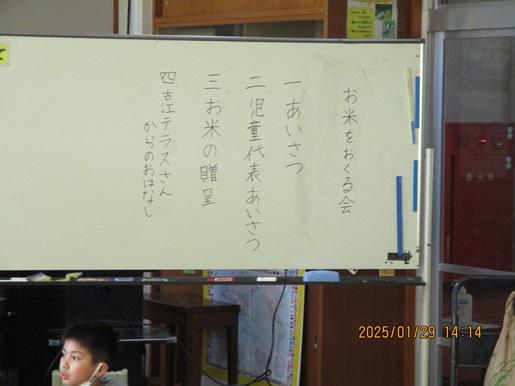 お米をおくる会
一、あいさつ
二、児童代表あいさつ
三、お米の贈呈
四、古江テラスさん
からのおはなし
2025/01/29 14:14